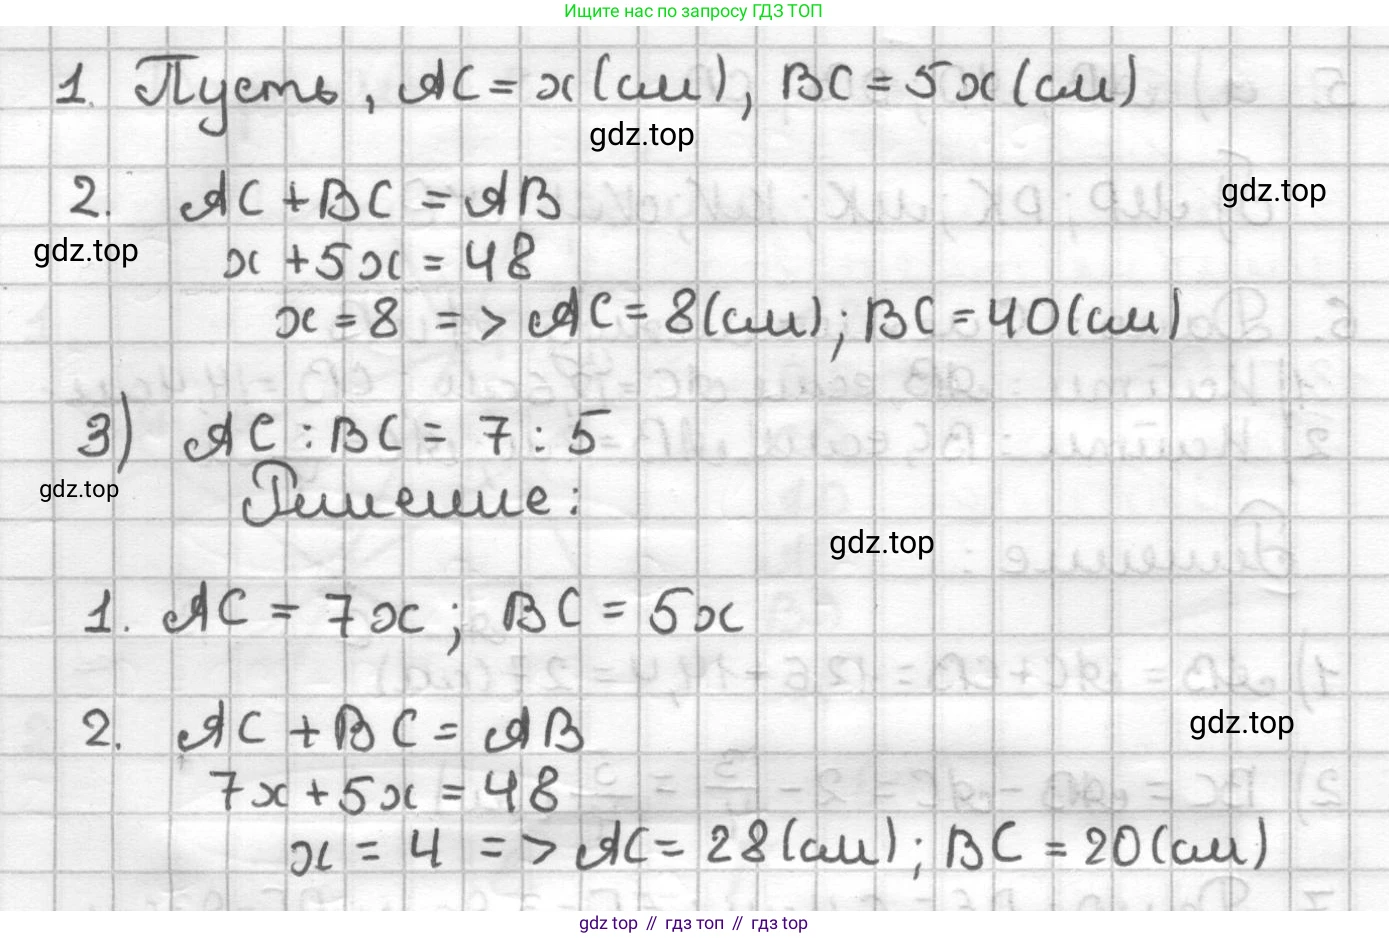 Ищите нас по запросу ГДЗ ТОП
1. Пусть, AC = x (см), BC = 5x (см)
gdz.top
2. AC + BC = AB
gdz.top
gdz.top
x + 5x = 48
x = 8 => AC = 8 (см); BC = 40 (см)
3) AC : BC = 7 : 5
gdz.top
Решение:
gdz.top
1. AC = 7x; BC = 5x
2. AC + BC = AB
gdz.top
7x + 5x = 48
x = 4 => AC = 28 (см); BC = 20 (см)
gdz top // гдз топ // гдз top